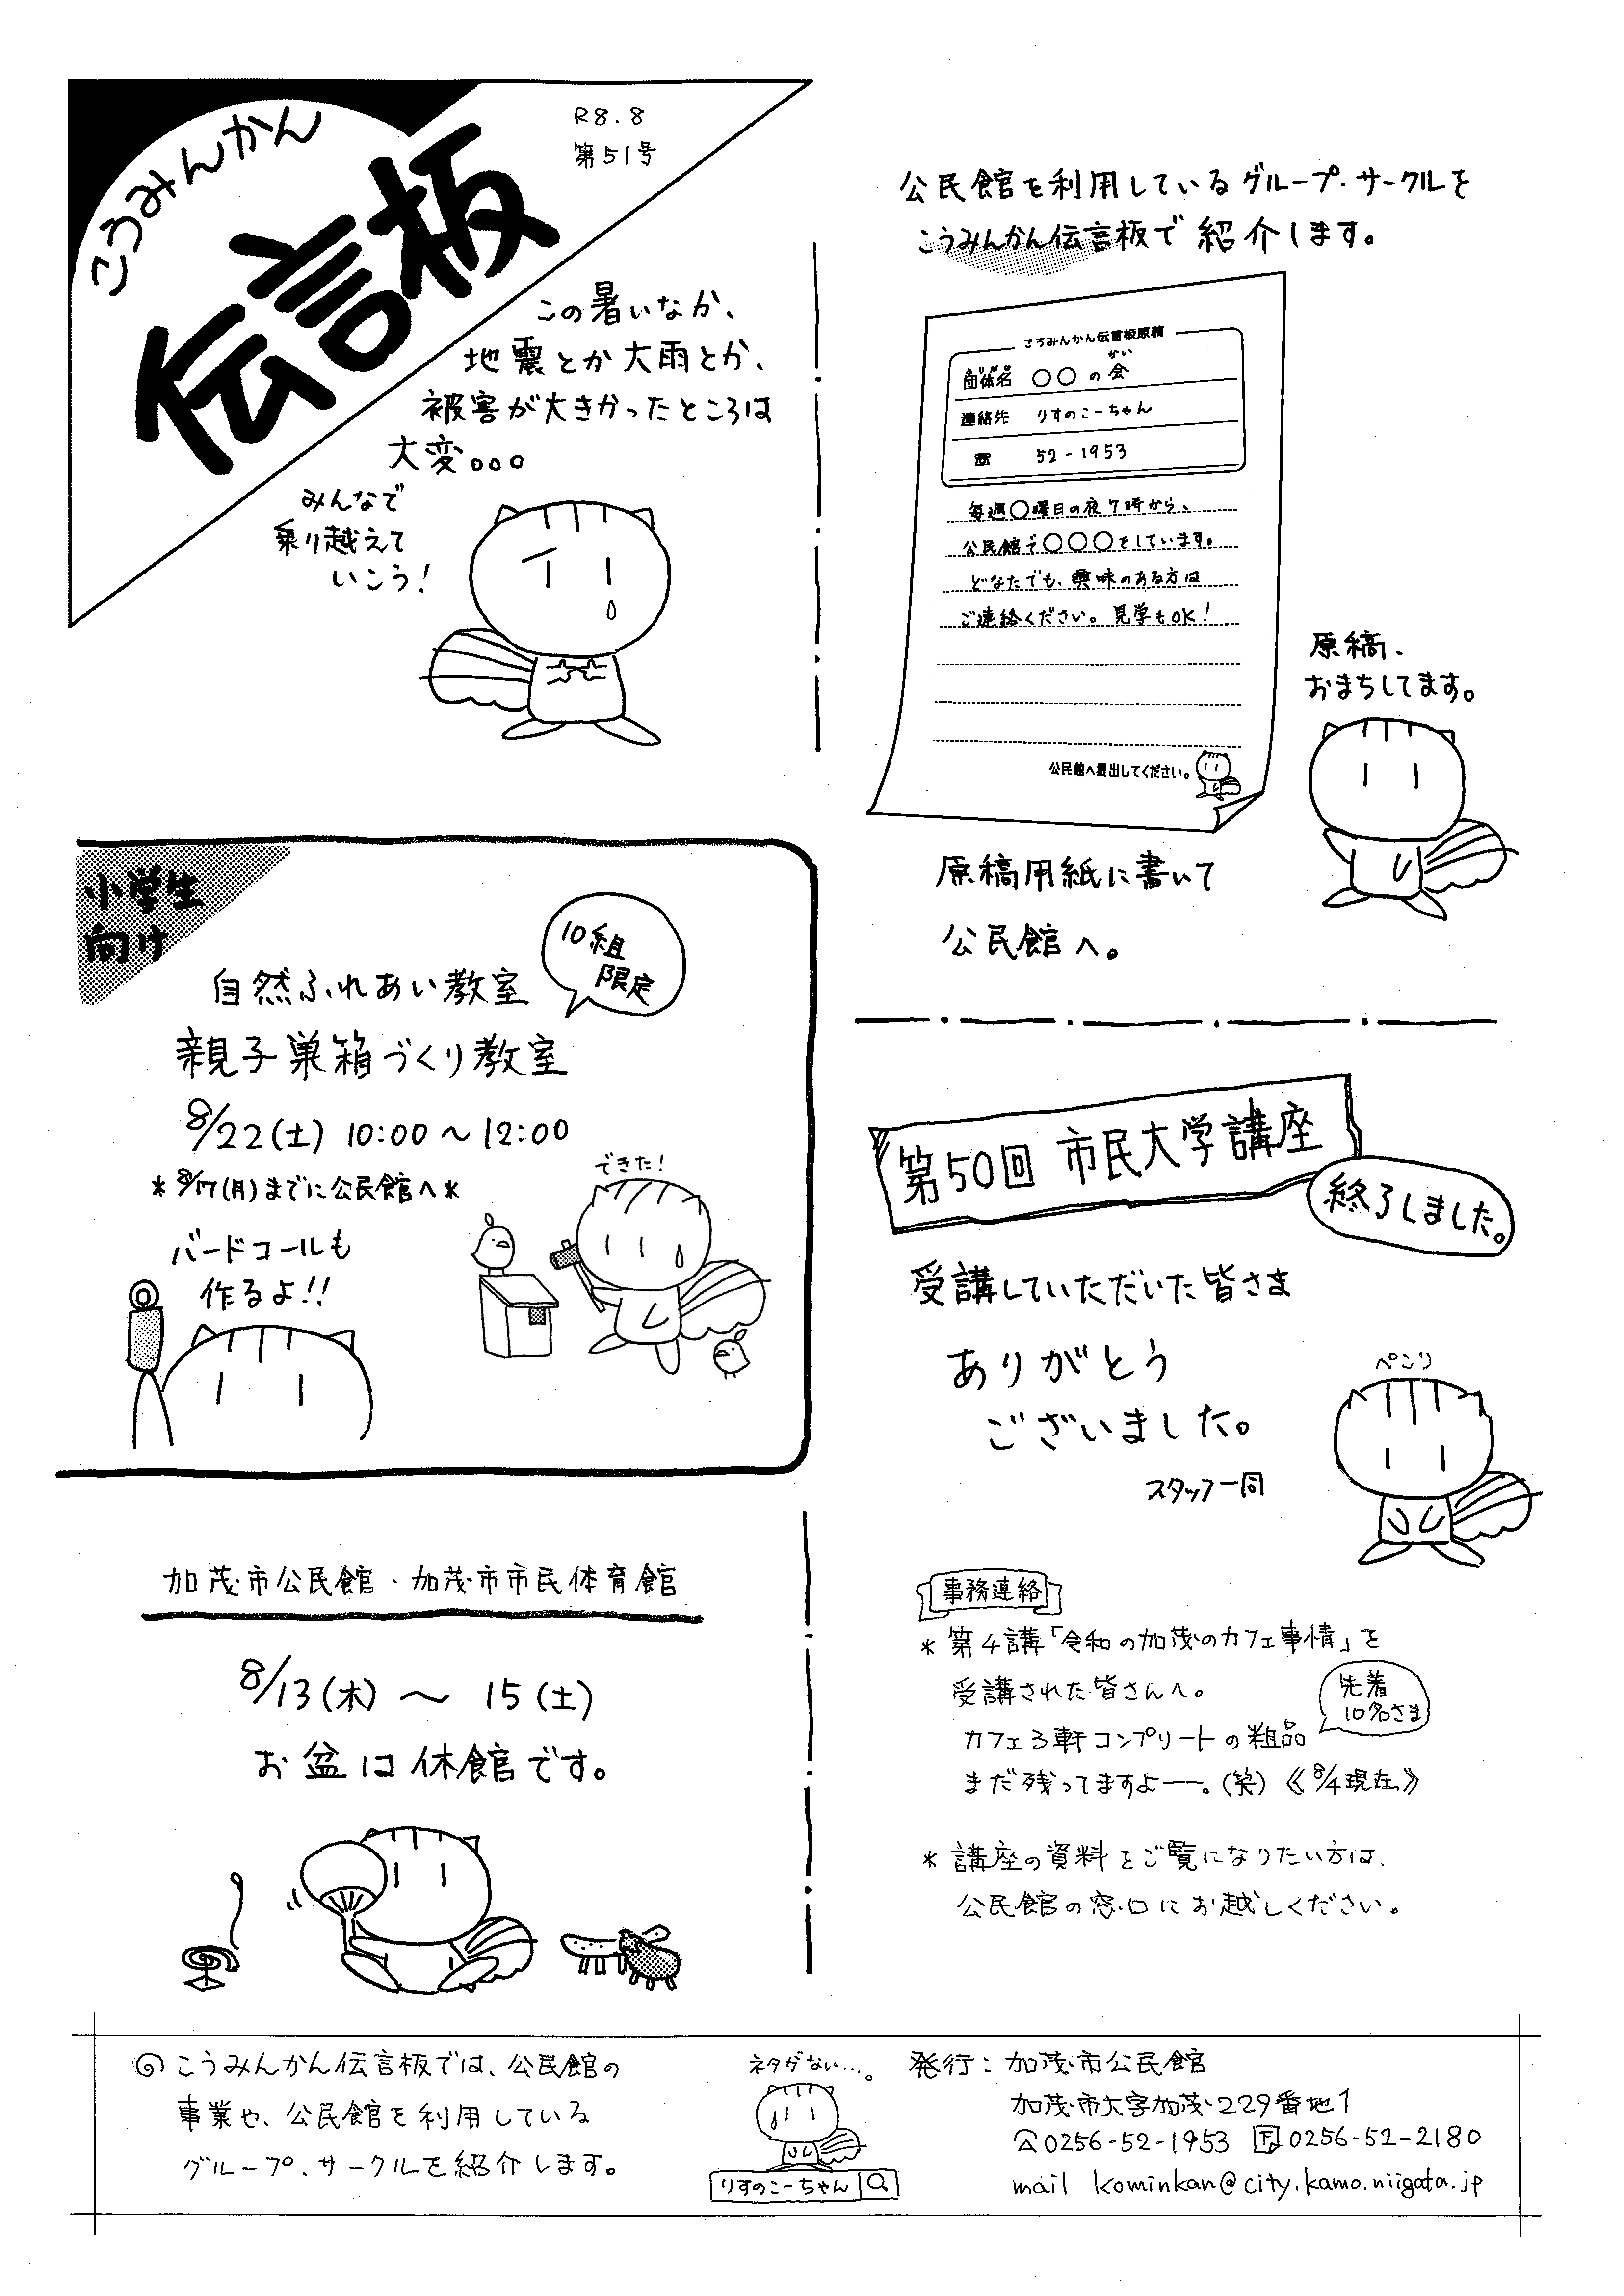 こうみんかん
伝言板
R8.8
第51号
この暑いなか、
地震とか大雨とか、
被害が大きかったところは
大変。。。
みんなで
乗り越えて
いこう！
公民館を利用しているグループ・サークルを
こうみんかん伝言板で紹介します。
こうみんかん伝言板原稿
ふりがな かい
団体名 〇〇の会
連絡先 りすのこーちゃん
☎ 52-1953
毎週〇曜日の夜7時から、
公民館で〇〇〇をしています。
どなたでも、興味のある方は
ご連絡ください。見学もOK！
公民館へ提出してください。
原稿、
おまちしてます。
原稿用紙に書いて
公民館へ。
小学生
向け
自然ふれあい教室
10組
限定
親子巣箱づくり教室
8/22(土) 10:00～12:00
*8/17(月)までに公民館へ*
できた！
バードコールも
作るよ!!
第50回 市民大学講座
終了しました。
受講していただいた皆さま
ありがとう
ございました。
スタッフ一同
ペコリ
加茂市公民館・加茂市市民体育館
8/13(木)～15(土)
お盆は休館です。
事務連絡
*第4講「令和の加茂のカフェ事情」を
受講された皆さんへ。
カフェ3軒コンプリートの粗品
先着
10名さま
まだ残ってますよー。(笑)《8/4現在》
*講座の資料をご覧になりたい方は、
公民館の窓口にお越しください。
こうみんかん伝言板では、公民館の
事業や、公民館を利用している
グループ、サークルを紹介します。
ネタがない…。
りすのこーちゃん
発行：加茂市公民館
加茂市大字加茂229番地1
☎0256-52-1953 FAX0256-52-2180
mail kominkan@city.kamo.niigata.jp